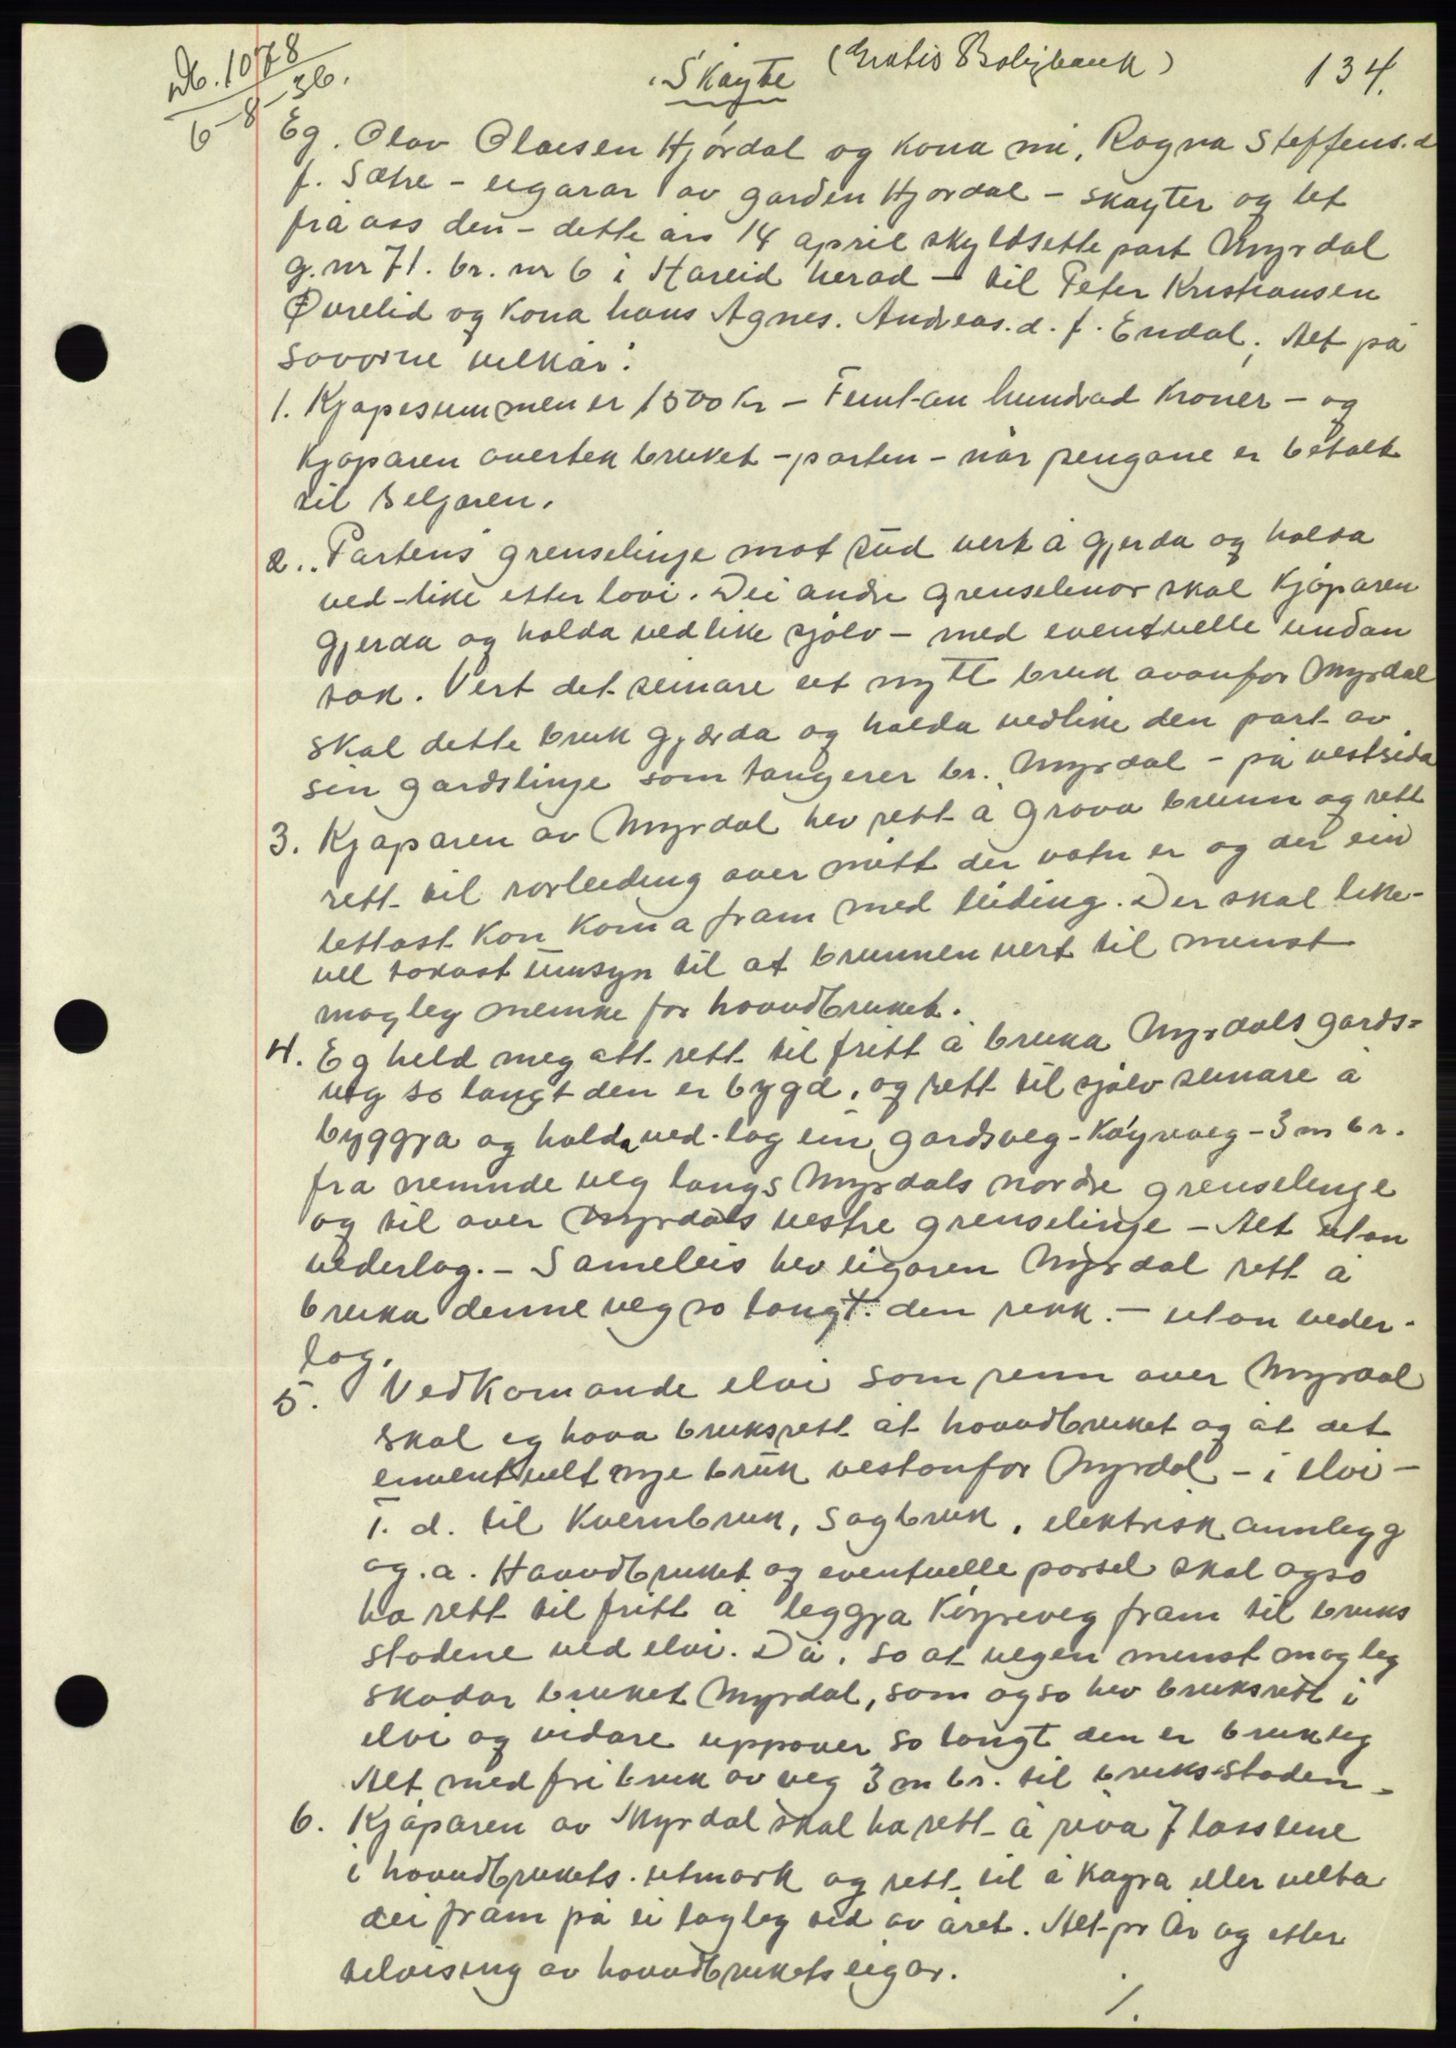 Db. 1078
6-8-36.
Skøyte (Gratis Boligbank) 134.
Eg. Olav Olaisen Hjørdal og kona mi, Ragna Steffens.d
f. Sætre - eigarar av garden Hjørdal - skøyter og let
frå oss den - dette års 14 april skyldsette part Myrdal
g.nr 71. br. nr 6 i Hareid herad - til Peter Kristiansen
Øvrelid og kona hans Agnes. Andreas.d. f. Endal; Alt på
sovorne vilkår:
1. Kjøpesummen er 1500 kr - Femt-an hundrad kroner - og
kjøparen overtek bruket - parten - når pengane er betalt
til Seljaren.
2.. Partens grenselinje mot sud vert å gjerda og halda
ved-like etter lovi. Dei andre grenselinor skal kjøparen
gjerda og halda vedlike sjølv - med eventuelle undan
tak. Vert det seinare eit nytt bruk ovanfor Myrdal
skal dette bruk gjærda og halda vedlike den part av
sin gardslinje som tangerer br. Myrdal - på vestsida
3. Kjøparen av Myrdal hev rett å grova brunn og rett
rett til rorleiding over mitt der vatn er og der ein
lettast kan koma fram med leiding. Der skal like-
vel takast umsyn til at brunnen vert til minst
mogleg meinke for hovudbruket.
4. Eg held meg att rett til fritt å bruka Myrdals gards=
veg so langt den er bygd, og rett til sjølv seinare å
byggja og halda ved-lag ein gardsveg - køyreveg - 3 m br.
fra nemnde veg langs Myrdals nordre grenselinje
og til over Myrdals vestre grenselinje - Alt utan
vederlag. - Sameleis hev eigaren Myrdal rett å
bruka denne veg so langt den rekk. - utan veder-
lag.
5. Vedkomande elvi som renn over Myrdal
skal eg hava bruksrett åt hovudbruket og åt det
enventuelt nye bruk vestanfor Myrdal - i elvi -
T. d. til Kvernbruk, sagbruk, elektrisk annlegg
og.a. Hovudbruket og eventuelle parsel skal ogso
ha rett til fritt å leggja køyreveg fram til bruks
stadene ved elvi. Då, so at vegen minst mogleg
skadar bruket Myrdal, som ogso hev bruksrett i
elvi og vidare uppover so langt den er brukleg
Alt med fri bruk av veg 3 m br. til bruks-staden -
6. Kjøparen av Myrdal skal ha rett å riva 7 lass eine
i hovudbrukets utmark og rett til å køyra eller velta
dei fram på ei lagleg tid av året. Alt pr År og etter
tilvising av hovudbrukets eigar.
/.